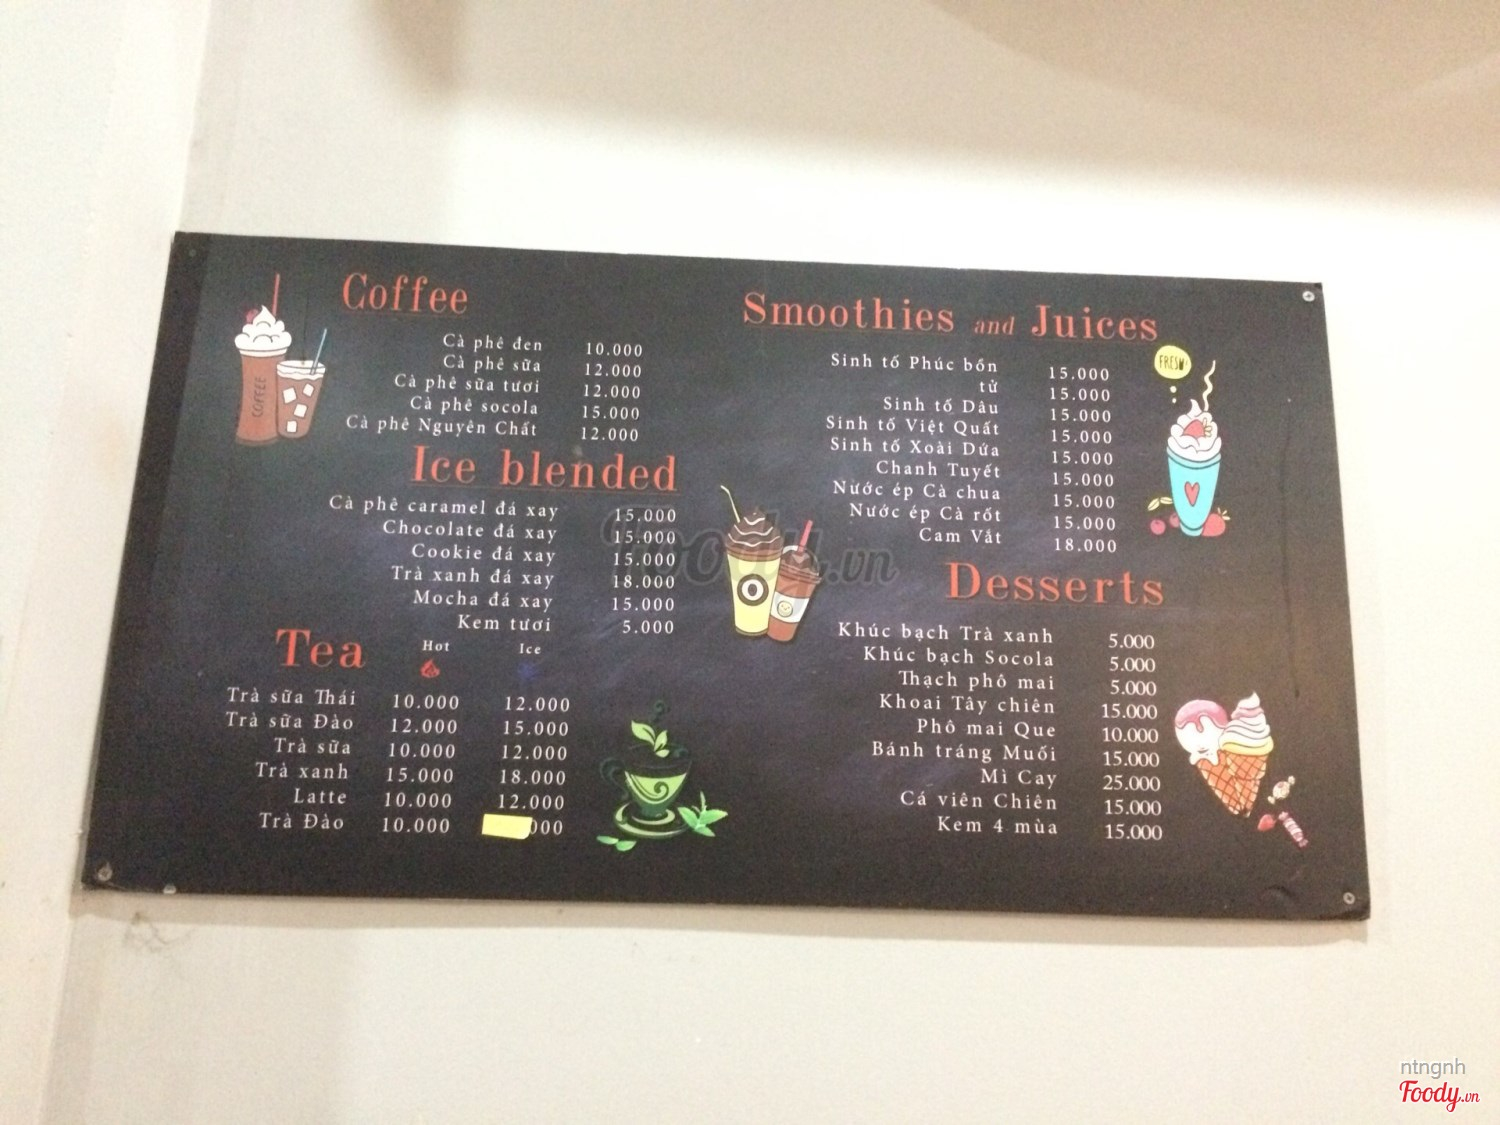 Coffee
Cà phê đen 10.000
Cà phê sữa 12.000
Cà phê sữa tươi 12.000
Cà phê socola 15.000
Cà phê Nguyên Chất 12.000
COFFEE
Ice blended
Cà phê caramel đá xay 15.000
Chocolate đá xay 15.000
Cookie đá xay 15.000
Trà xanh đá xay 18.000
Mocha đá xay 15.000
Kem tươi 5.000
Tea Hot Ice
Trà sữa Thái 10.000 12.000
Trà sữa Đào 12.000 15.000
Trà sữa 10.000 12.000
Trà xanh 15.000 18.000
Latte 10.000 12.000
Trà Đào 10.000 000
Smoothies and Juices
FRESH!
Sinh tố Phúc bồn 15.000
tử 15.000
Sinh tố Dâu 15.000
Sinh tố Việt Quất 15.000
Sinh tố Xoài Dứa 15.000
Chanh Tuyết 15.000
Nước ép Cà chua 15.000
Nước ép Cà rốt 15.000
Cam Vắt 18.000
Desserts
Khúc bạch Trà xanh 5.000
Khúc bạch Socola 5.000
Thạch phô mai 5.000
Khoai Tây chiên 15.000
Phô mai Que 10.000
Bánh tráng Muối 15.000
Mì Cay 25.000
Cá viên Chiên 15.000
Kem 4 mùa 15.000
Foody.vn
ntngnh
Foody.vn